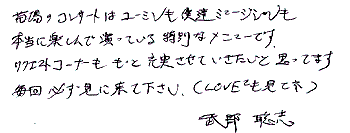 苗場のコンサートはユーミンも僕達ミュージシャンも
本当に楽しんで演っている特別なメニューです。
リクエストコーナーももっと充実させていきたいと思ってます
毎回必ず見に来て下さい。(LOVE²も見てネ)
武部聡志